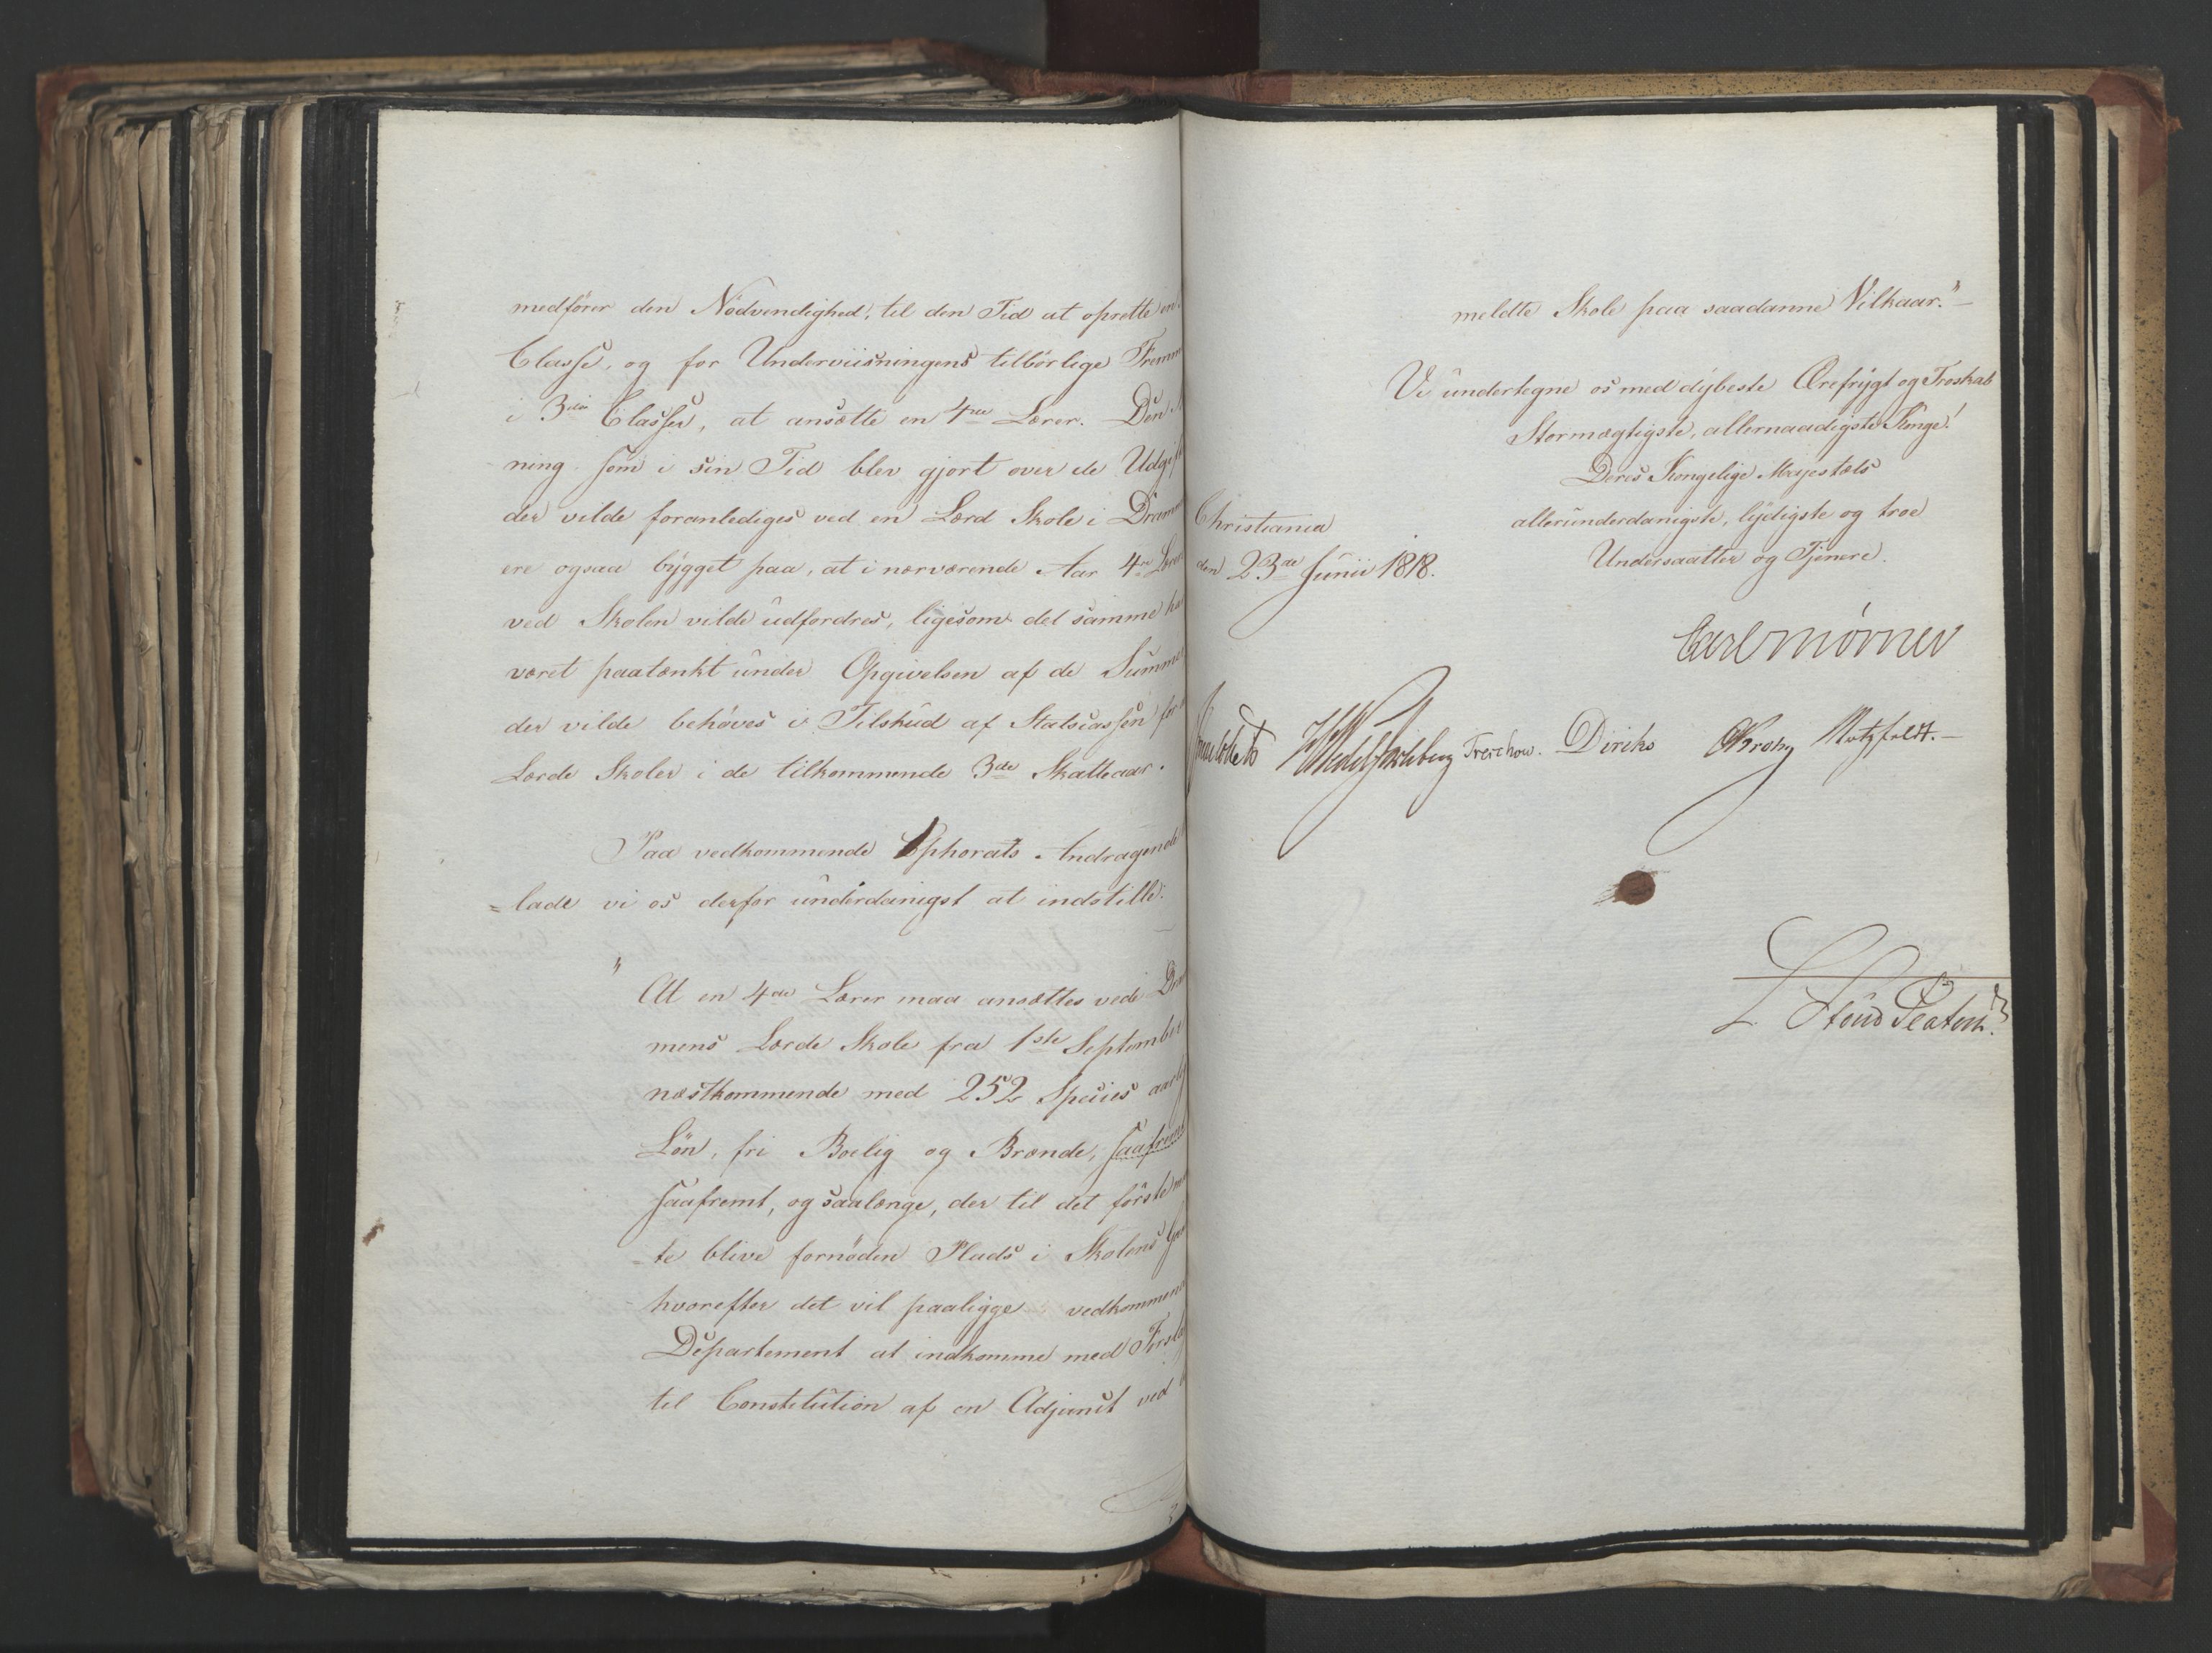 medfører den Nødvendighed, til den Tid at oprette en
Classe, og for Underviisningens tilbørlige Fremm
i 3die Classer, at ansætte en 4de Lærer. Den
ning som i sin Tid blev gjort over de Udgif
der vilde foranlediges ved en Lærd Skole i Dramm
ere ogsaa bygget paa, at i nærværende Aar 4re Lærer
ved Skolen vilde udfordres, ligesom det samme har
været paatænkt under Opgivelsen af de Summer
der vilde behøves i Tilskud af Statscassen for
Lærde Skoler i de tilkommende 3de Skatteaar.
Paa vedkommende Ephorats Andragende
= lade vi os derfor underdanigst at indstille:
" At en 4de Lærer maa ansættes ved Dra
mens Lærde Skole fra 1ste September
næstkommende med 252 Species aarlig
Løn, fri Boelig og Brænde, saafremt
saafremt, og saalænge, der til det første
te blive fornøden Plads i Skolens
hvorefter det vil paaligge vedkommend
Departement at indkomme med Forsla
til Constitution af en Adjunct ved
meldte Skole paa saadanne Vilkaar." –
Vi undertegne os med dybeste Ærefrygt og Troskab
Stormægtigste, allernaadigste Konge!
Deres Kongelige Majestæts
allerunderdanigste, lydigste og troe
Undersaatter og Tjenere.
Christiania
den 23de Junii 1818.
Carl Mörner
Sommerhielm HWedelJarlsberg Treschow. Diriks Krog Motzfeldt. –